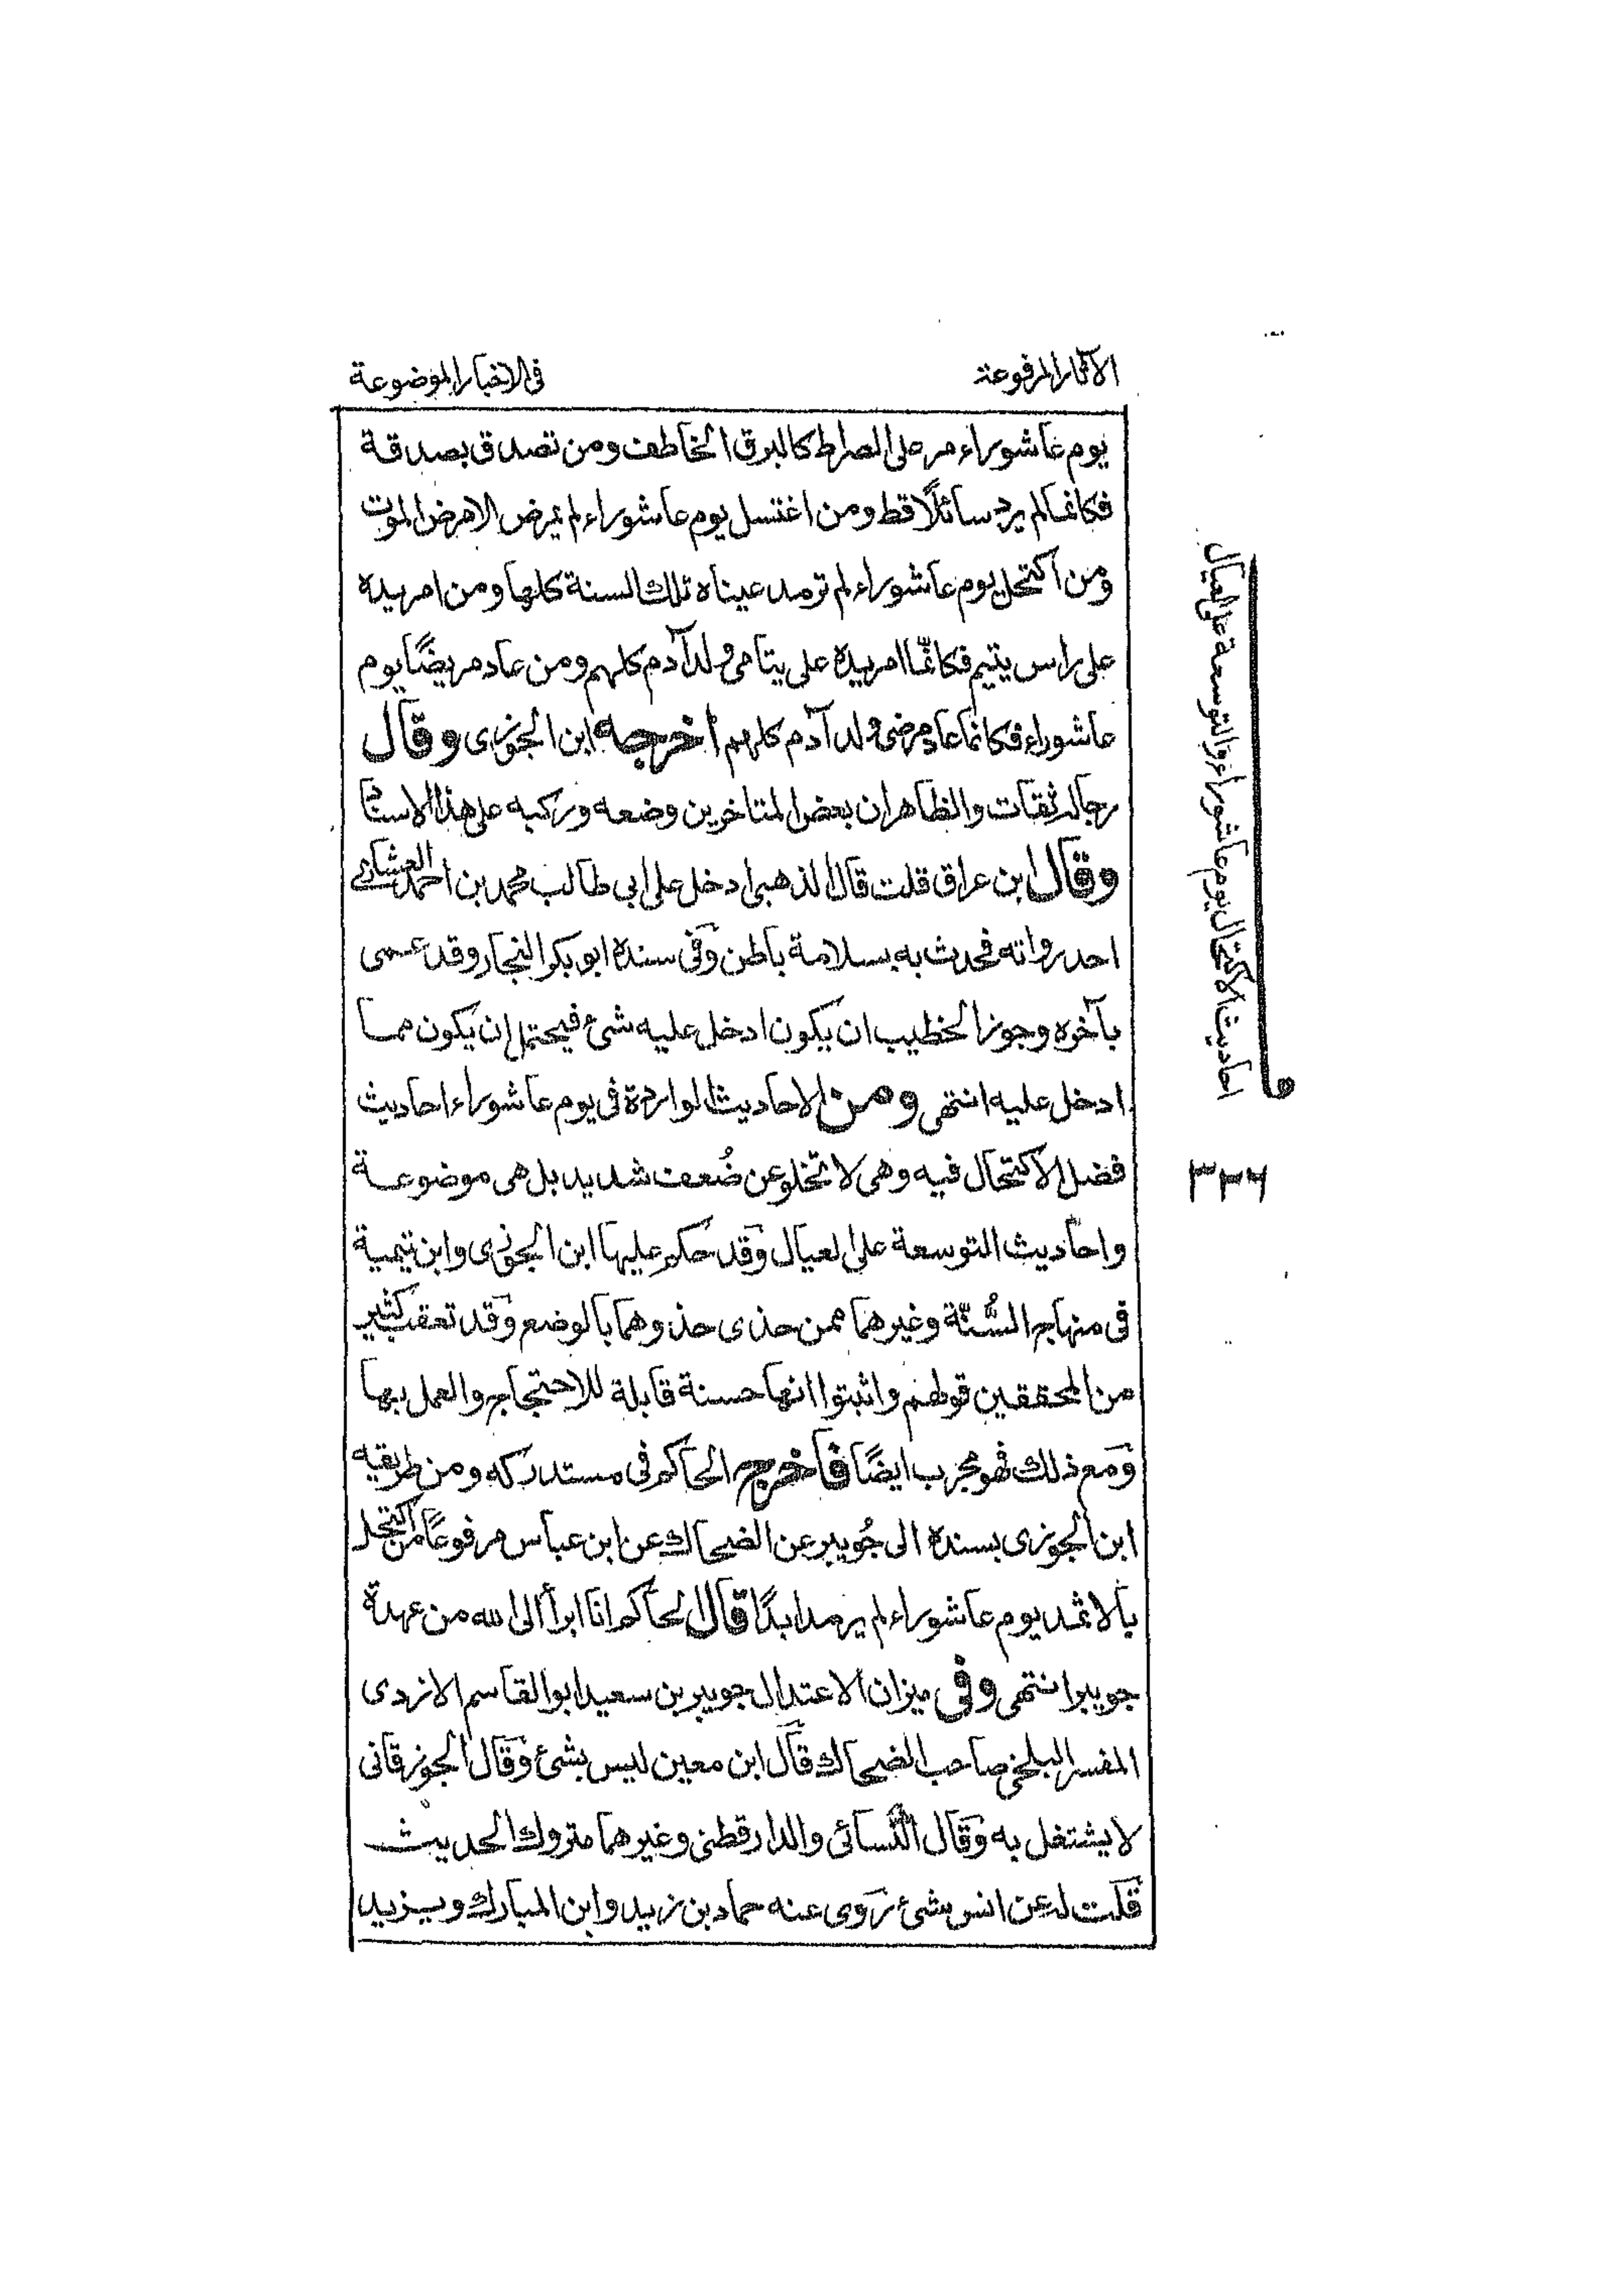 الآثار المرفوعة
فى الاخبار الموضوعة
يوم عاشوراء مر على الصراط كالبرق الخاطف ومن تصدق بصدقة
فكانما لم يرد سائلًا قط ومن اغتسل يوم عاشوراء لم يمرض الا مرض الموت
ومن اكتحل يوم عاشوراء لم ترمد عيناه تلك السنة كلها ومن امر يده
على راس يتيم فكانّما امر يده على يتامى ولد آدم كلهم ومن عاد مريضًا يوم
عاشوراء فكانما عاد مرضى ولد آدم كلهم اخرجه ابن الجوزى وقال
رجاله ثقات والظاهر ان بعض المتاخرين وضعه وركبه على هذا الاسناد
وقال ابن عراق قلت قال الذهبى ادخل على ابى طالب محمد بن احمد العشارى
احد رواته فحدث به بسلامة باطن وفى سنده ابو بكر النجار وقد عمى
بآخره وجوز الخطيب ان يكون ادخل عليه شئ فيحتمل ان يكون مما
ادخل عليه انتهى ومن الاحاديث الواردة فى يوم عاشوراء احاديث
فضل الاكتحال فيه وهى لا تخلو عن ضُعف شديد بل هى موضوعة
واحاديث التوسعة على العيال وقد حكم عليها ابن الجوزى وابن تيمية
فى منهاج السُّنّة وغيرهما ممن حذى حذوهما بالوضع وقد تعقب كثير
من المحققين قولهم واثبتوا انها حسنة قابلة للاحتجاج والعمل بها
ومع ذلك فهو مجرب ايضًا فاخرج الحاكم فى مستدركه ومن طريقه
ابن الجوزى بسنده الى جُويبر عن الضحاك عن ابن عباس مرفوعًا من اكتحل
بالاثمد يوم عاشوراء لم يرمد ابدًا قال الحاكم انا ابرأ الى الله من عهدة
جويبر انتهى وفى ميزان الاعتدال جويبر بن سعيد ابو القاسم الازدى
المفسر البلخى صاحب الضحاك قال ابن معين ليس بشئ وقال الجوزقانى
لا يشتغل به وقال النّسائى والدارقطنى وغيرهما متروك الحديث
قلت له عن انس شئ روى عنه حماد بن زيد وابن المبارك ويزيد
احاديث الاكتحال يوم عاشوراء والتوسعة على العيال
و
٣٢٦